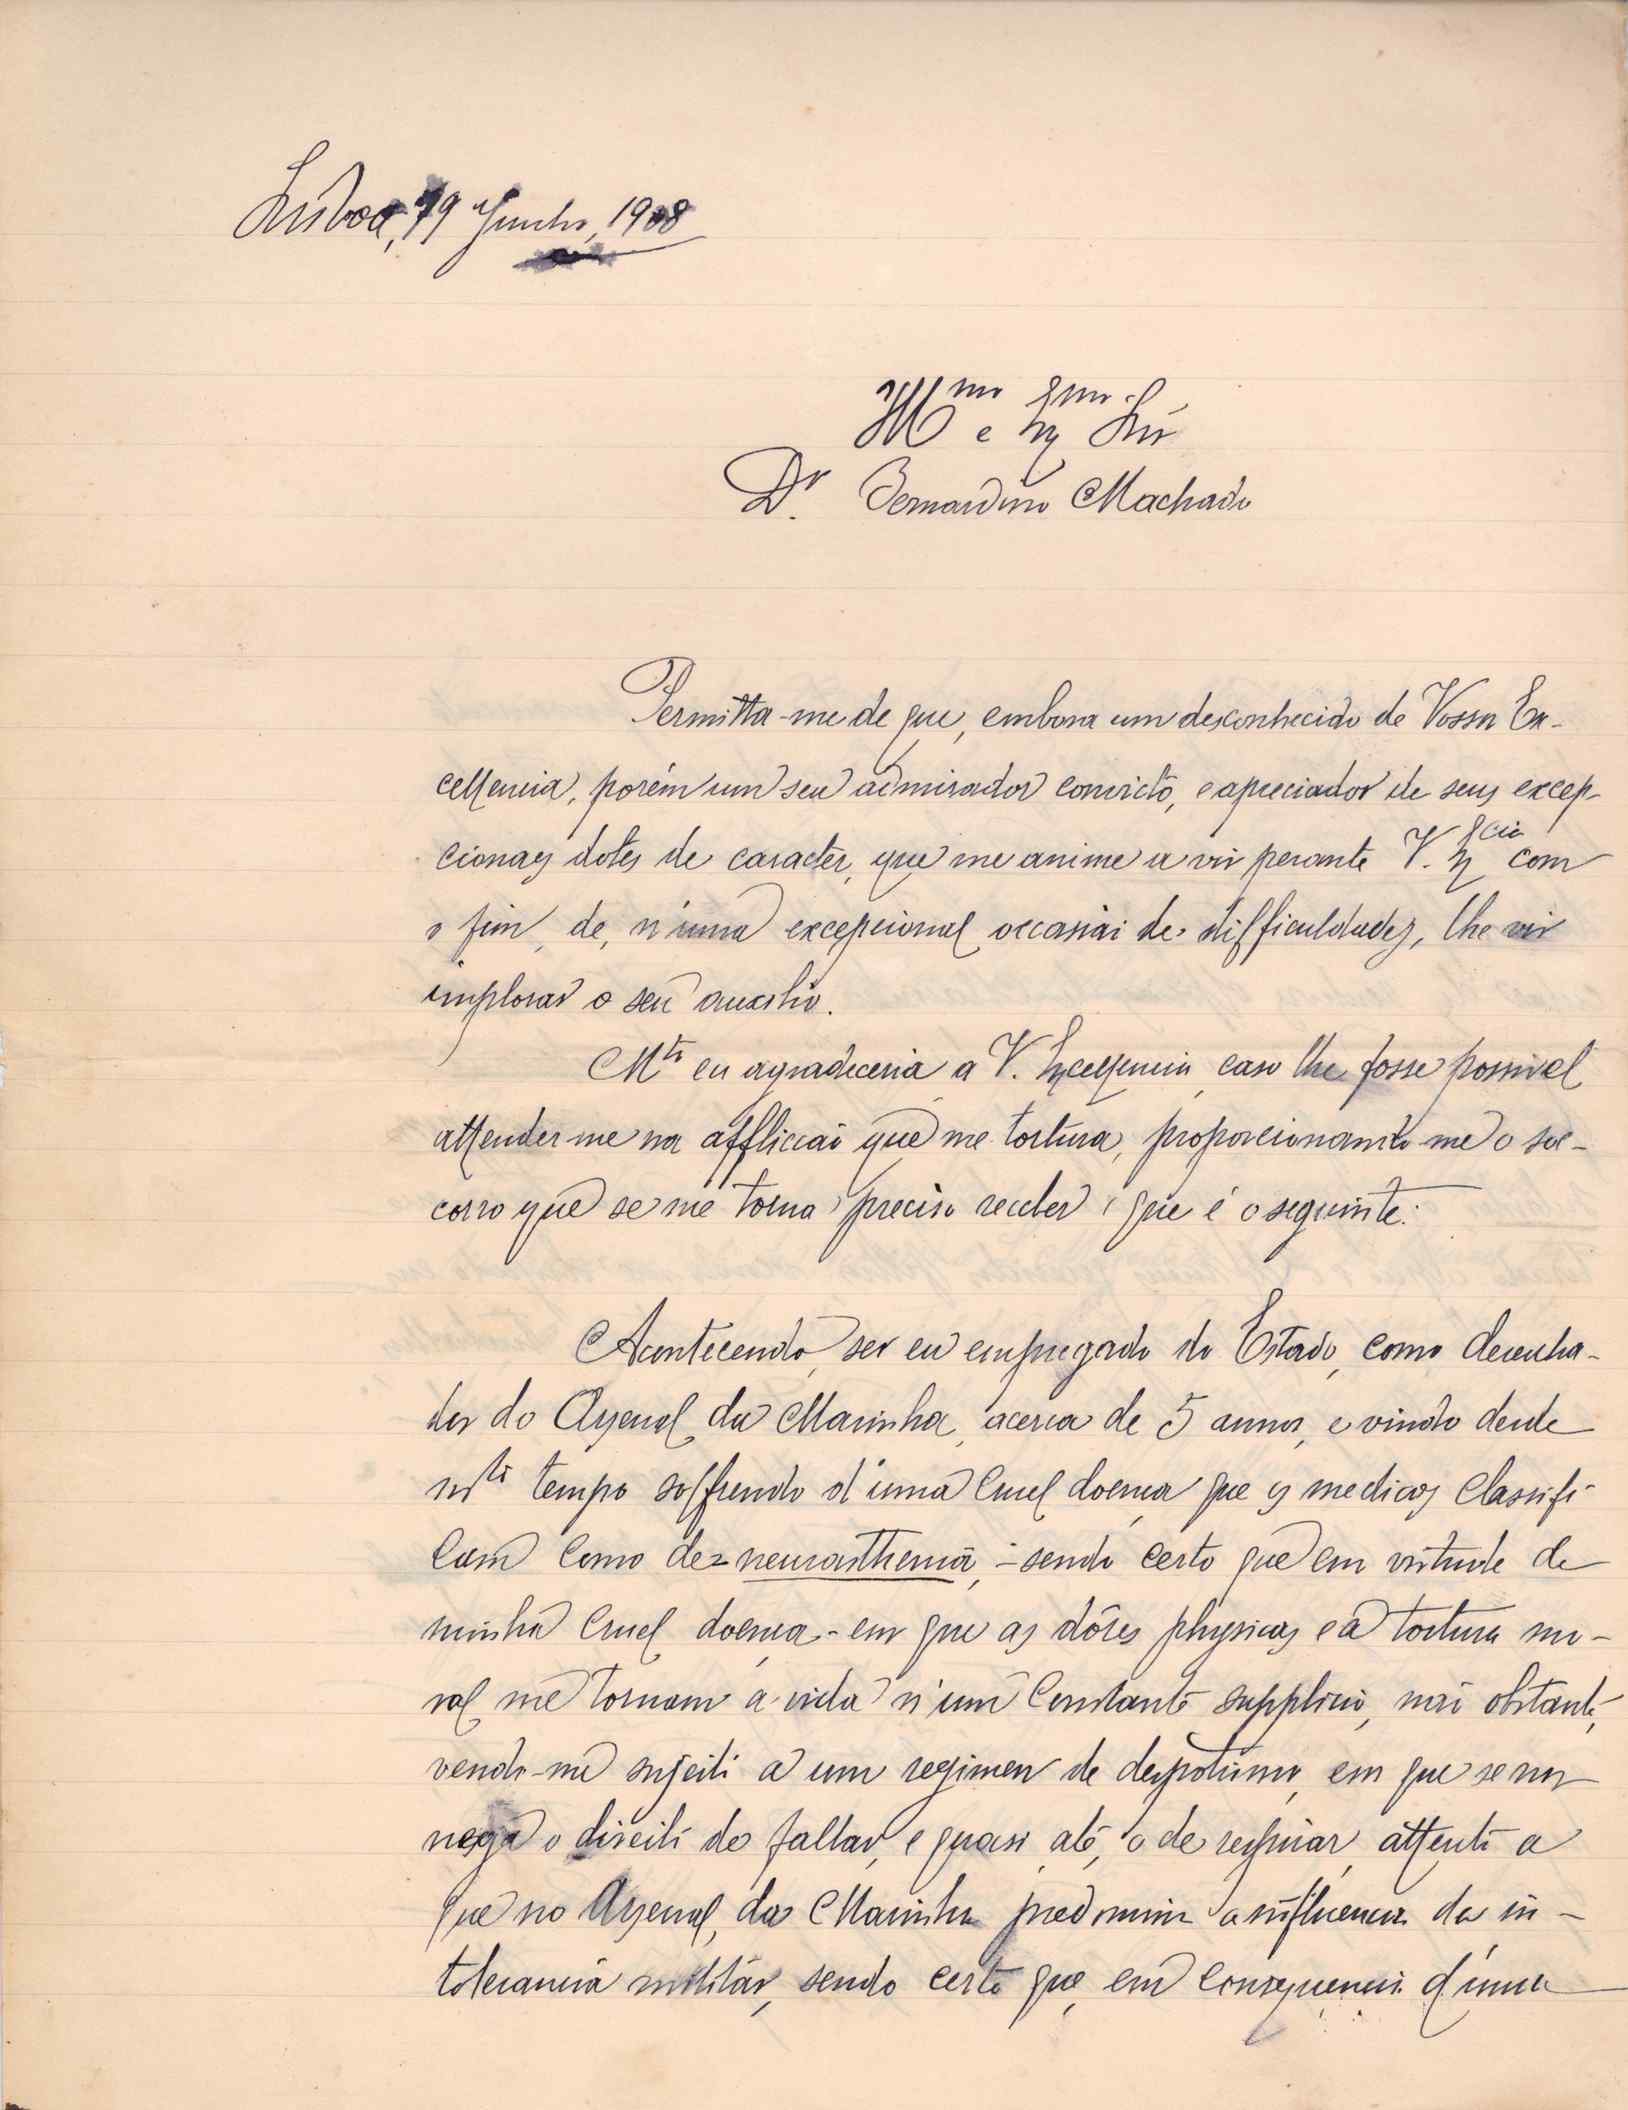 Lisboa, 19 Junho, 1908
Illmo e Exmo Snr
Dr. Bernardino Machado
Permitta-me de que, embora um desconhecido de Vossa Ex-
cellencia, porém um seu admirador convicto, e apreciador de seus excep-
cionaes dotes de caracter, que me anime a vir perante V. Excia com
o fim, de, n'uma excepcional occasião de difficuldades, lhe vir
implorar o seu auxilio.
Mto eu agradeceria a V. Excellencia, caso lhe fosse possivel
attender-me na afflicção que me tortura, proporcionando-me o soc-
corro que se me torna preciso receber e que é o seguinte:
Acontecendo, ser eu empregado do Estado, como desenha-
dor do Arsenal da Marinha, acerca de 5 annos, e vindo desde
tempo soffrendo d'uma cruel doença que os medicos classifi-
cam como de = neurasthenia, - sendo certo que em virtude de
minha cruel doença - em que as dôres physicas e a tortura mo-
ral me tornam a vida n'um constante supplicio, não obstante,
vendo-me sujeito a um regimen de despotismo, em que se nos
nega o direito de faltar, e quasi até, o de respirar, attento a
que no Arsenal, da Marinha predomina a influencia da in-
tolerancia militár, sendo certo que, em consequencia d'uma